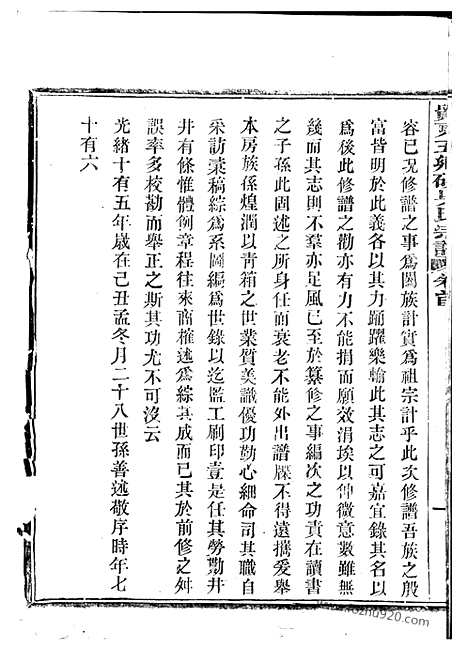 容已現修譜之事爲闔族計實爲祖宗計乎此次修譜吾族之殷
富皆明於此義各以其力踊躍樂輸此其志之可嘉宜錄其前以
爲後此修譜之勸亦有力不能捐而願效涓埃以伸微意數雖無
幾而其志則不羣亦足風已至於纂修之事編次之功責在讀書
之子孫此固述之所身任而衰老不能外出譜牒不得遠攜爰舉
本房族孫煌潤以靑箱之世業質美識優功勤心細命司其職自
采訪彙稿綜爲系圖編爲世錄以迄監工刷印壹是任其勞勩井
井有條惟體例章程往來商榷述爲綜其成而已其於前修之舛
誤率多校勘而舉正之斯其功尤不可沒云
光緖十有五年歲在己丑孟冬月二十八世孫善述敬序時年七
十有六
宗譜 卷首